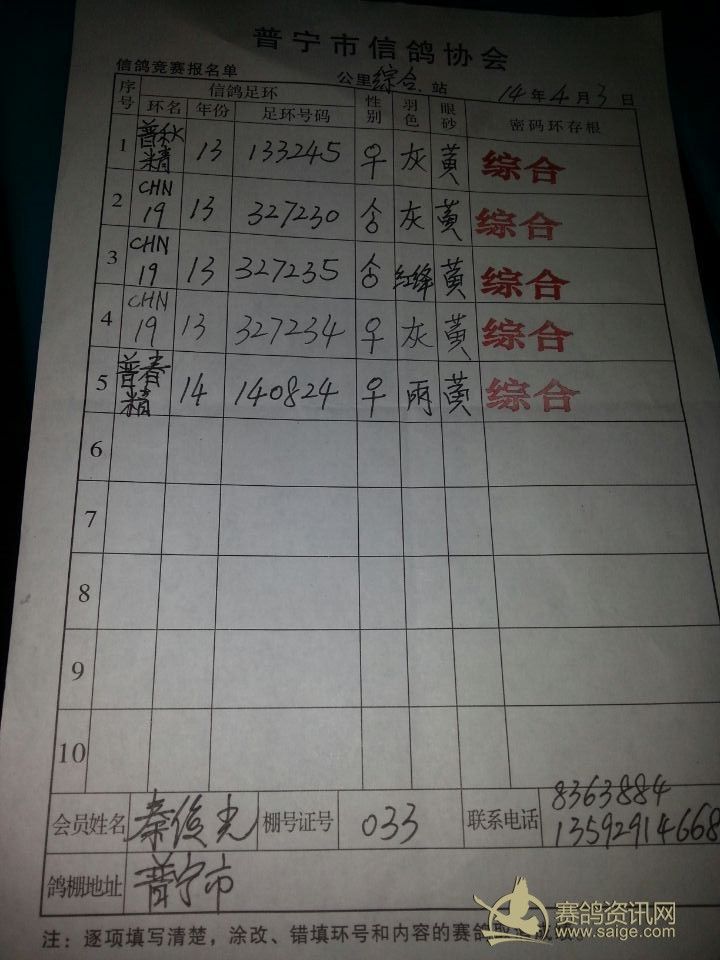 普宁市信鸽协会
信鸽竞赛报名单 公里综合站 14年4月3日
序号 信鸽足环 性别 羽色 眼砂 密码环存根
环名 年份 足环号码
1 普秋精 13 133245 ♀ 灰 黄 综合
2 CHN19 13 327230 灰 黄 综合
3 CHN19 13 327235 红绛 黄 综合
4 CHN19 13 327234 ♀ 灰 黄 综合
5 普春精 14 140824 ♀ 雨 黄 综合
6
7
8
9
10
会员姓名 秦俊光 棚号证号 033 联系电话 8363884
13592914668
鸽棚地址 普宁市
注：逐项填写清楚，涂改、错填环号和内容的赛鸽
赛鸽资讯网
www.saige.com